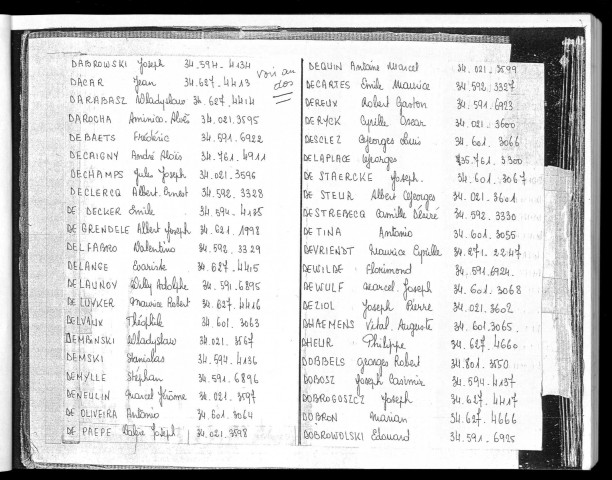 DABROWSKI Joseph 34.594-4134
DACAR Jean 34.627-4413
voir au dos
DARABASZ Wladyslaw 34.627-4414
DAROCHA Aminico Aloës 34.021.3595
DEBAETS Frédéric 34.591-6922
DECAIGNY André Aloïs 34.761.4911
DECHAMPS Jules Joseph 34.021-3596
DECLERCQ Albert Ernest 34.592.3328
DE DECKER Emile 34.594-4135
DE GRENDELE Albert Joseph 34.621.1998
DELFABRO Valentino 34.592.3329
DELANGE Evariste 34.627-4415
DELAUNOY Willy Adolphe 34.591-6895
DE LUYKER Maurice Robert 34.627-4416
DELVAUX Théophile 34.601.3063
DEMBINSKI Wladyslaw 34.021.3567
DEMSKI Stanislas 34.594-4136
DEMYLLE Stéphan 34.591-6896
DENEULIN Marcel Jérôme 34.021-3597
DE OLIVEIRA Antonio 34.601.3064
DE PAEPE Joseph 34.021-3598
DEQUIN Antoine Marcel 34.021-3599
DECARTES Emile Maurice 34.592.3327
DEREUX Robert Gaston 34.591-6923
DERYCK Cyrille Oscar 34.021-3600
DESCLEZ Georges Louis 34.601.3066
DELAPLACE Georges 35.761.3300
DE STAERCKE Joseph. 34.601.3067
DE STEUR Albert Georges 34.021-3601
DESTREBECQ Camille Désiré 34.592.3330
DE TINA Antonio 34.601.3055
DEVRIENDT Maurice Cyrille 34.271.2247
DEWILDE Florimond 34.591-6924
DEWULF Marcel Joseph 34.601.3068
DEZIOL Joseph Pierre 34.021.3602
DHAEMENS Vital Auguste 34.601.3065
DHEUR Philippe 34.627-4660
DOBBELS Georges Robert 34.801.3550
DOBOSZ Joseph Casimir 34.594-4137
DOBROGOSZCZ Joseph 34.627-4417
DOBRON Marian 34.627-4666
DOBROWOLSKI Edouard 34.591-6925